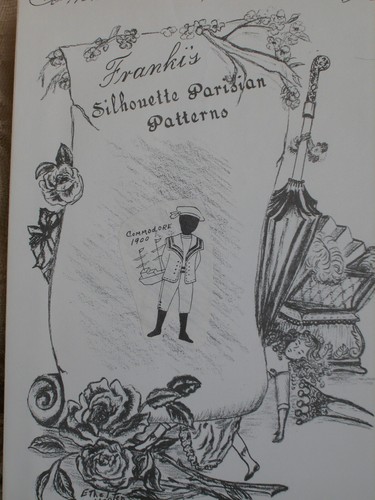 Franki's
Silhouette Parisian
Patterns
Commodore
1900